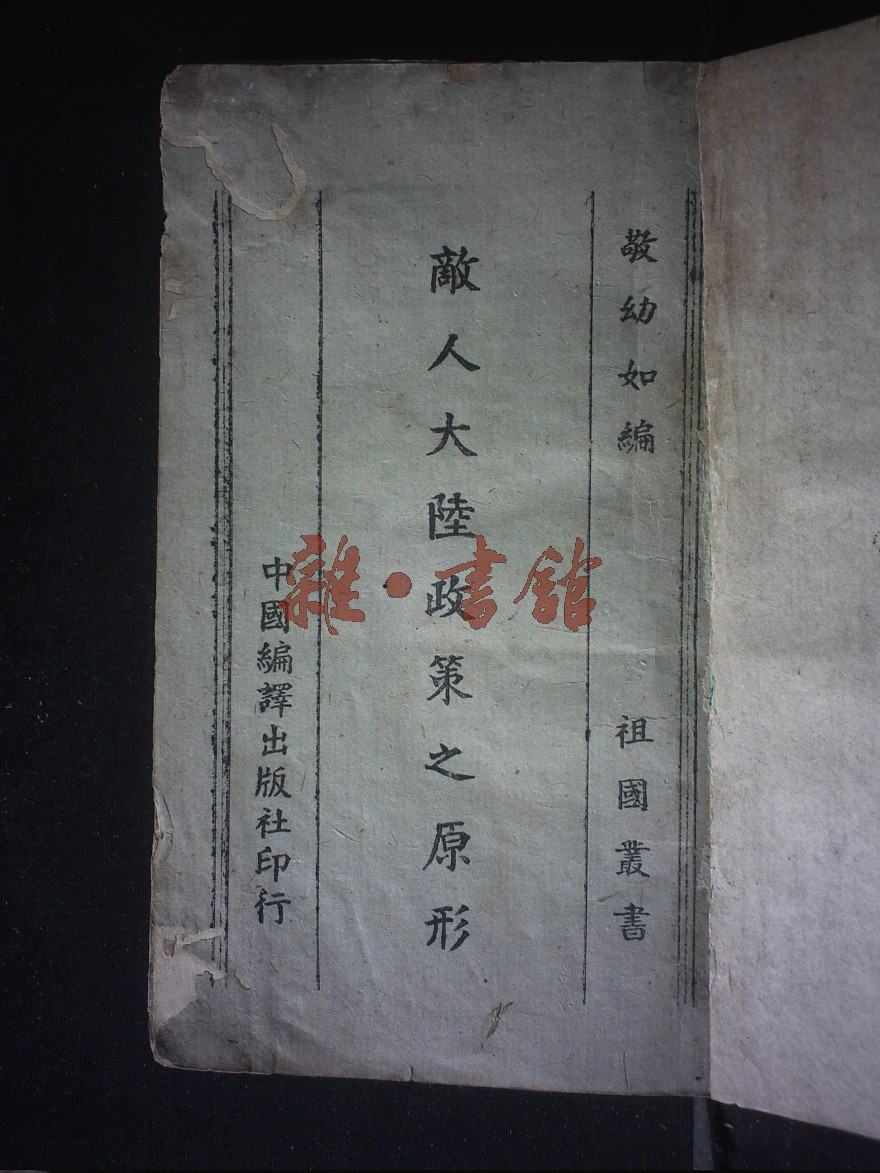 敬幼如編 祖國叢書
敵人大陸政策之原形
中國編譯出版社印行
雜·書館